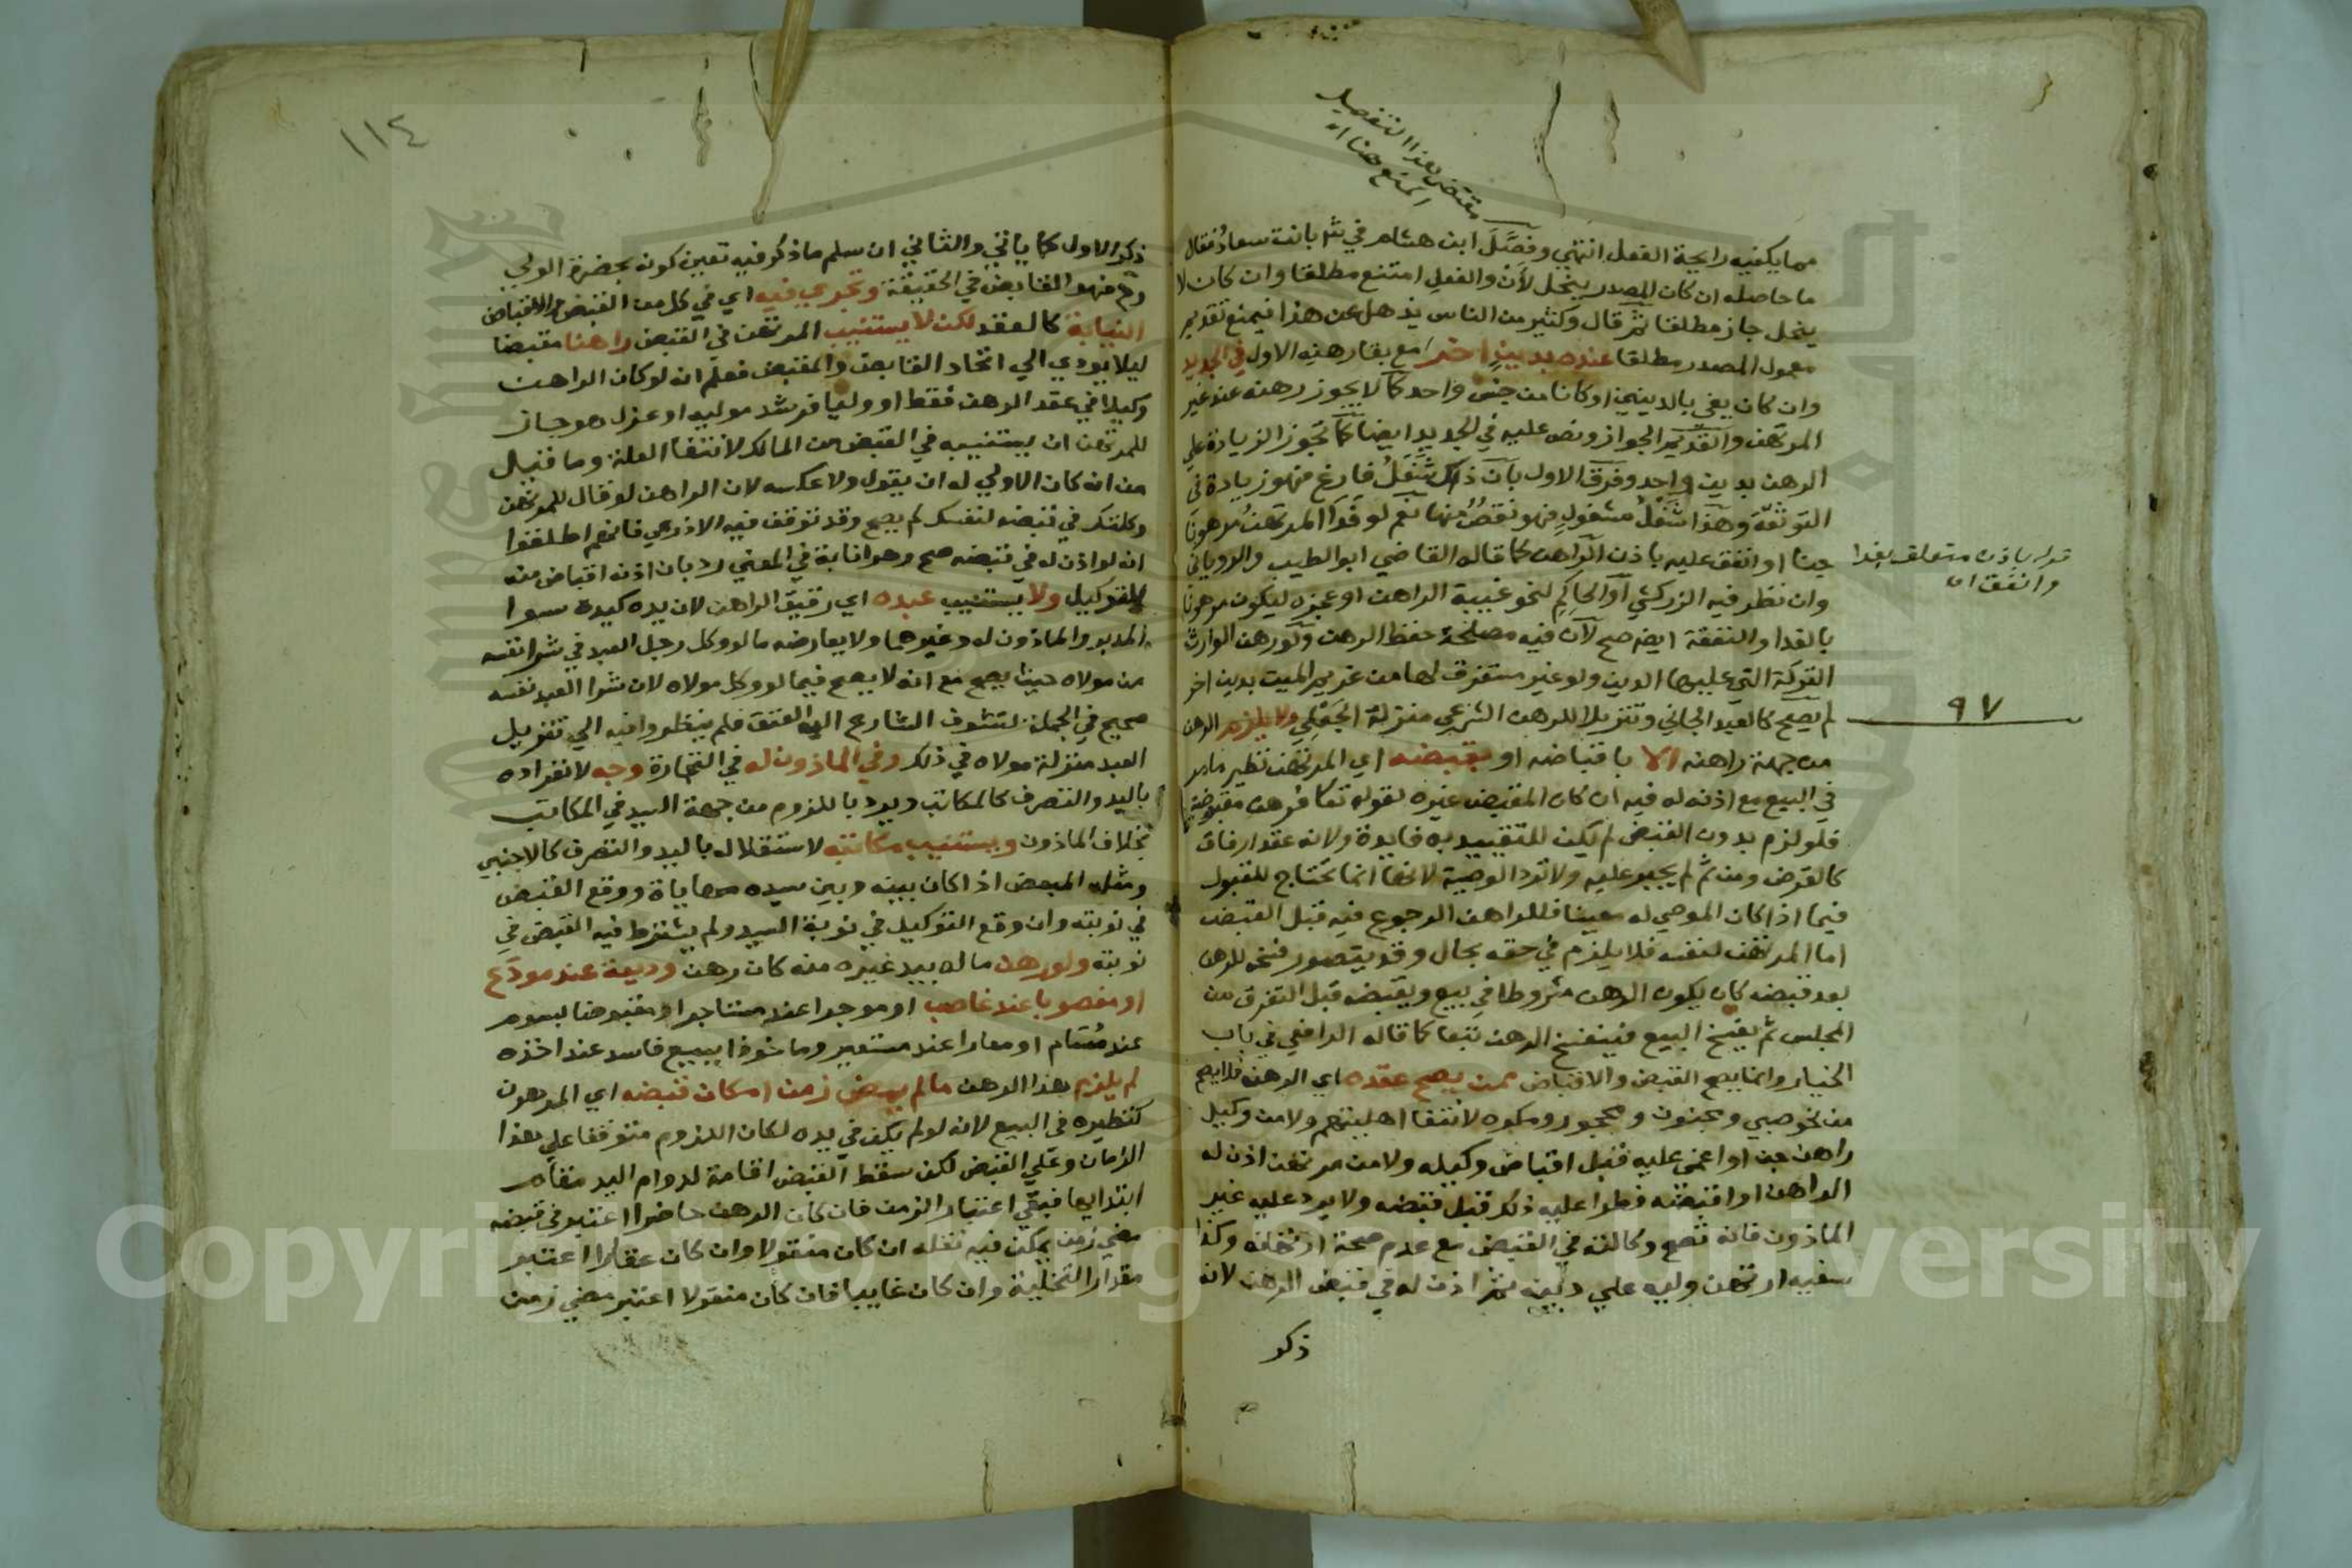 مقتضى هذا التفصيل
المنع هنا اه
مما يكفيه رايحة الفعل انتهي وفَصَّلَ ابن هشام في شر بانت سعادُ فقال
ما حاصله ان كان المصدر ينحل لأن والفعل امتنع مطلقا وان كان لا
ينحل جاز مطلقا ثم قال وكثير من الناس يذهل عن هذا فيمنع تقديم
معمول المصدر مطلقا عنده بدينٍ اخر مع بقا رهنه الاول في الجديد
وان كان يفي بالدينين او كانا من جنس واحد كما لا يجوز رهنه عند غير
المرتهن والقديم الجواز ونص عليه في الجديد ايضا كما تجوز الزيادة علي
الرهن بدين واحد وفرق الاول بان ذلك شَغلُ فارغ فهو زيادة في
التوثقة وهذا شَغلُ مشغولٍ فهو نقصٌ منها نعم لو فَدَا المرتهنُ مرهونًا
جنا او انفق عليه باذن الراهن كما قاله القاضي ابو الطيب والروياني
وان نظر فيه الزركشي او الحاكِمِ لنحو غيبة الراهن او عجزه ليكون مرهونا
بالفدا والنفقة ايضا صح لأن فيه مصلحة حفظ الرهن ولو رهن الوارث
التركة التي عليها الدين ولو غير مستغرق لها من غريم الميت بدين اخر
لم يصح كالعبد الجاني وتنزيلا للرهن الشرعي منزلة الجَعْلِي ولا يلزم الرهن
من جهة راهنه الا باقباضه او بقبضه اي المرتهن نظير ما مر
في البيع مع اذنه له فيه ان كان المقبض غيره لقوله تعا فرهن مقبوضة
فلو لزم بدون القبض لم يكن للتقييد به فايدة ولانه عقد ارفاق
كالقرض ومن ثم لم يجبر عليه ولا ترد الوصية لانها انما تحتاج للقبول
فيما اذا كان الموصي له معينا فللراهن الرجوع فيه قبل القبض
اما المرتهن لنفسه فلا يلزم في حقه بحال وقد يتصور فسخه للرهن
بعد قبضه كان يكون الرهن مشروطا في بيع ويقبضه قبل التفرق من
المجلس ثم يفسخ البيع فينفسخ الرهن تبعا كما قاله الرافعي في باب
الخيار وانما يصح القبض والاقباض ممن يصح عقده اي الرهن فلا يصح
من نحو صبي ومجنون ومحجور ومكره لانتفا اهليتهم ولا من وكيل
راهن جن او اغمي عليه قبل اقباض وكيله ولا من مرتهن اذن له
الراهن او اقبضه فطرا عليه ذلك قبل قبضه ولا يرد عليه غير
الماذون فانه تصح وكالته في القبض مع عدم صحة ارتهانه وكذا
سفيه ارتهن وليه علي دينه ثم اذن له في قبض الرهن لانه
ذكر
قوله باذن متعلق بفدا
وانفق اه
٩٧
١١٤
ذكر الاول كما ياتي والثاني ان سلم ما ذكر فيه تعين كونه بحضرة الولي
ثم فهو القابض في الحقيقة وتجري فيه اي في كل من القبض والاقباض
النيابة كالعقد لكن لا يستنيب المرتهن في القبض راهنا مقبضا
ليلا يودي الي اتحاد القابض والمقبض فعلم انه لو كان الراهن
وكيلا في عقد الرهن فقط او وليا فرشد موليه او عزل هو جاز
للمرتهن ان يستنيبه في القبض من المالك لانتفا العلة وما قيل
من انه كان الاولي له ان يقول ولا عكسه لان الراهن لو قال للمرتهن
وكلتك في قبضه لنفسك لم يصح وقد توقف فيه الاذرعي فانهم اطلقوا
انه لو اذن له في قبضه صح وهو انابة في المعني رد بان اذنه اقباض منه
لا توكيل ولا يستنيب عبده اي رقيق الراهن لان يده كيده سوا
المدبر والماذون له وغيرهما ولا يعارضه ما لو وكل رجل العبد في شرا نفسه
من مولاه حيث يصح مع انه لا يصح فيما لو وكل مولاه لان شرا العبد نفسه
صحيح في الجملة لتشوف الشارع الي العتق فلم ينظروا فيه الي تنزيل
العبد منزلة مولاه في ذلك وفي الماذون له في التجارة وجه لانفراده
باليد والتصرف كالمكاتب ويرد باللزوم من جهة السيد في المكاتب
بخلاف الماذون ويستنيب مكاتبه لاستقلاله باليد والتصرف كالاجنبي
ومثله المبعض اذا كان بينه وبين سيده مهاياة ووقع القبض
في نوبته وان وقع التوكيل في نوبة السيد ولم يشترط فيه القبض في
نوبته ولو رهن ماله بيد غيره منه كان رهن وديعة عند مودَع
او مغصوبا عند غاصب او موجرا عند مستاجر او مقبوضا بسوم
عند مُستام او معارا عند مستعير وماخوذا ببيع فاسد عند اخذه
لم يلزم هذا الرهن ما لم يمض زمن امكان قبضه اي المرهون
كنظيره في البيع لانه لو لم يكن في يده لكان اللزوم متوقفا علي هذا
الزمان وعلي القبض لكن سقط القبض اقامة لدوام اليد مقام
ابتدايها فبقي اعتبار الزمن فان كان الرهن حاضرا اعتبر في قبضه
مضي زمن يمكن فيه نقله ان كان منقولا وان كان عقارا اعتبر
مقدار التخلية وان كان غايبا فان كان منقولا اعتبر مضي زمن
Copyright © King Saud University